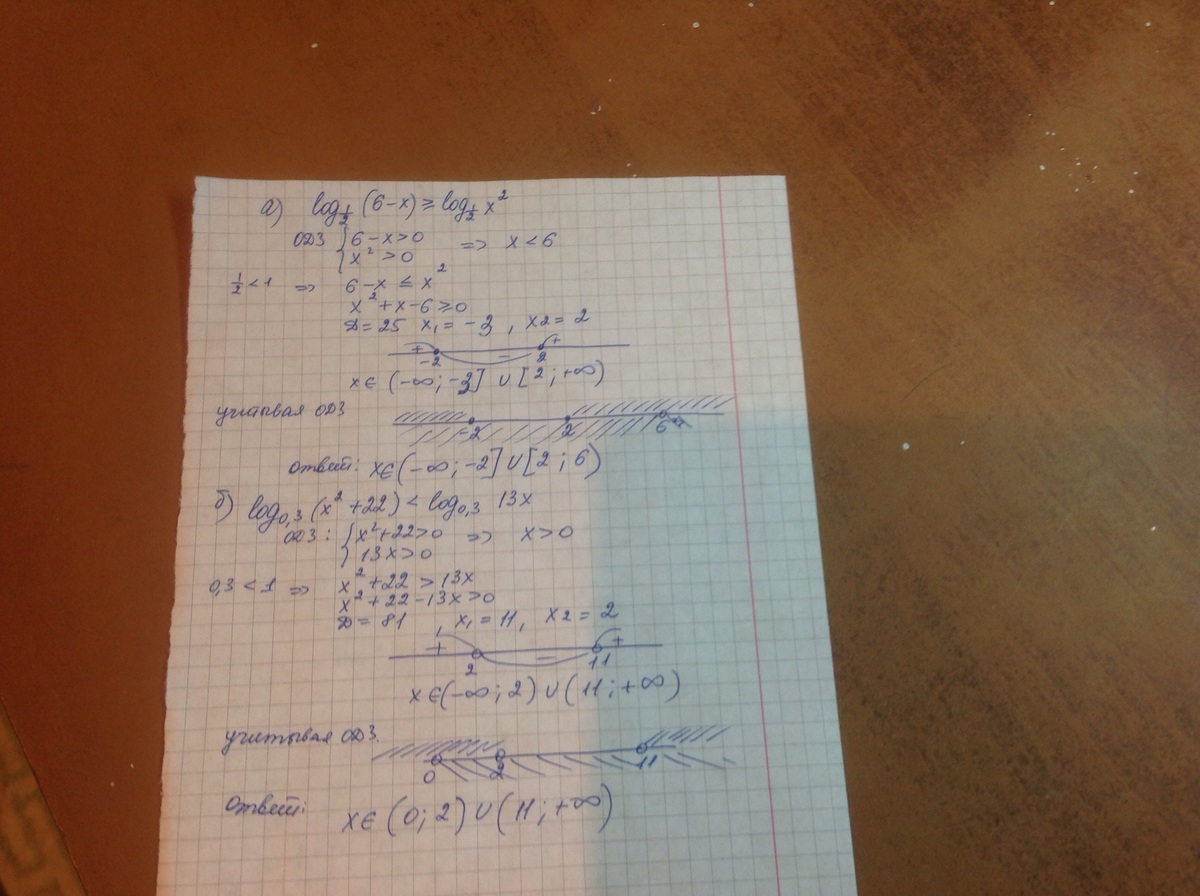 а) log_{1/2} (6-x) ≥ log_{1/2} x²
ОДЗ { 6-x>0 => x<6
x²>0
1/2 < 1 => 6-x ≤ x²
x²+x-6≥0
D=25 x₁=-3, x2=2
+ - +
-2 2
x∈(-∞;-3] ∪ [2;+∞)
учитывая ОДЗ
-2 2 6
Ответ: x∈(-∞;-2] ∪ [2;6)
б) log_{0,3} (x²+22) < log_{0,3} 13x
ОДЗ: { x²+22>0 => x>0
13x>0
0,3<1 => x²+22 > 13x
x²+22-13x>0
D=81, x₁=11, x2=2
+ - +
2 11
x∈(-∞;2) ∪ (11;+∞)
учитывая ОДЗ.
0 2 11
Ответ: x∈(0;2) ∪ (11;+∞)